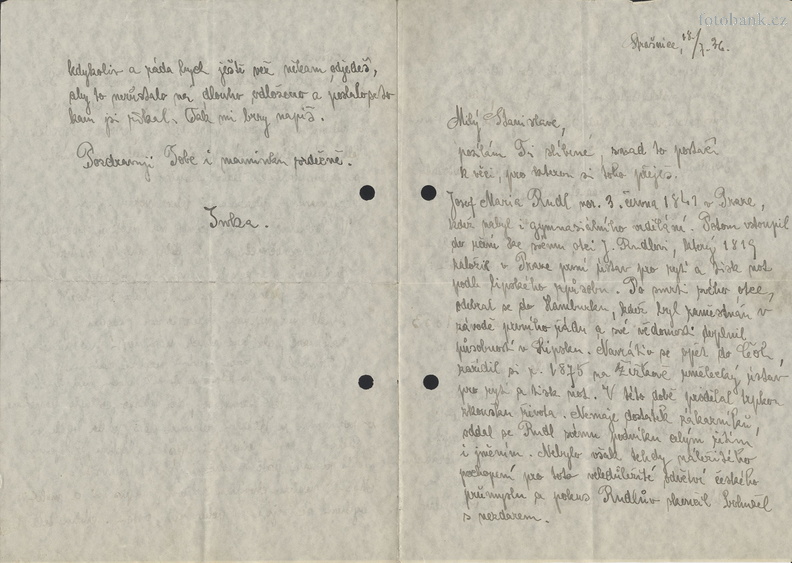 fotobank.cz
kdykoliv a ráda bych ještě než někam odjedeš,
aby to nezůstalo na dlouho odloženo a
kam jsi říkal. Tak mi brzy napiš.
Pozdravuji Tebe i maminku srdečně.
Strašnice, 7. 36.
Milý Stanislave,
posílám Ti slíbené, snad to postačí
k věci, pro kterou si toho přeješ.
Josef Maria Rudl nar. 3. června 1841 v Praze,
kdež nabyl i gymnasiálního vzdělání. Potom vstoupil
do učení ke svému otci J. Rudlovi, který 1819
založil v Praze první ústav pro rytí a tisk not
podle lipského způsobu. Po smrti svého otce,
odebral se do Hamburku, kdež byl zaměstnán v
závodě prvního řádu a své vědomosti doplnil
působností v Lipsku. Navrátiv se zpět do Čech,
zařídil si r. 1875 na Žižkově umělecký ústav
pro rytí a tisk not. V této době prodělal trpkou
zkoušku života. Nemaje dostatek zákazníků
oddal se Rudl svému podniku celým žitím
i jměním. Nebylo však tehdy náležitého
pochopení pro toto veledůležité odvětví českého
průmyslu a pokus Rudlův skončil
s nezdarem.